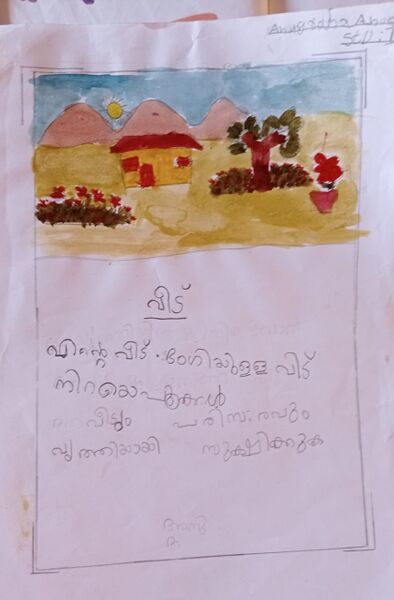 Anugraha
Std: I
വീട്
എന്റെ വീട് ഭംഗിയുള്ള വീട്
നിറയെ പൂക്കൾ
വീടും പരിസരവും
വൃത്തിയായി സൂക്ഷിക്കുക